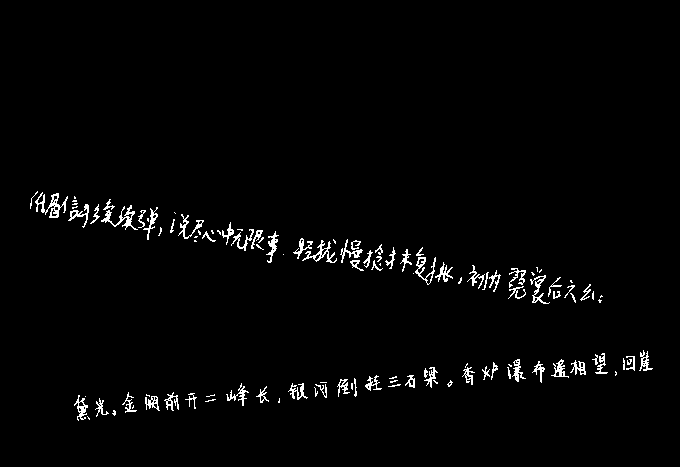 低眉信手续续弹,说尽心中无限事.轻拢慢捻抹复挑,初为霓裳后六幺:
黛光。金阙前开二峰长,银河倒挂三石梁。香炉瀑布遥相望,回崖